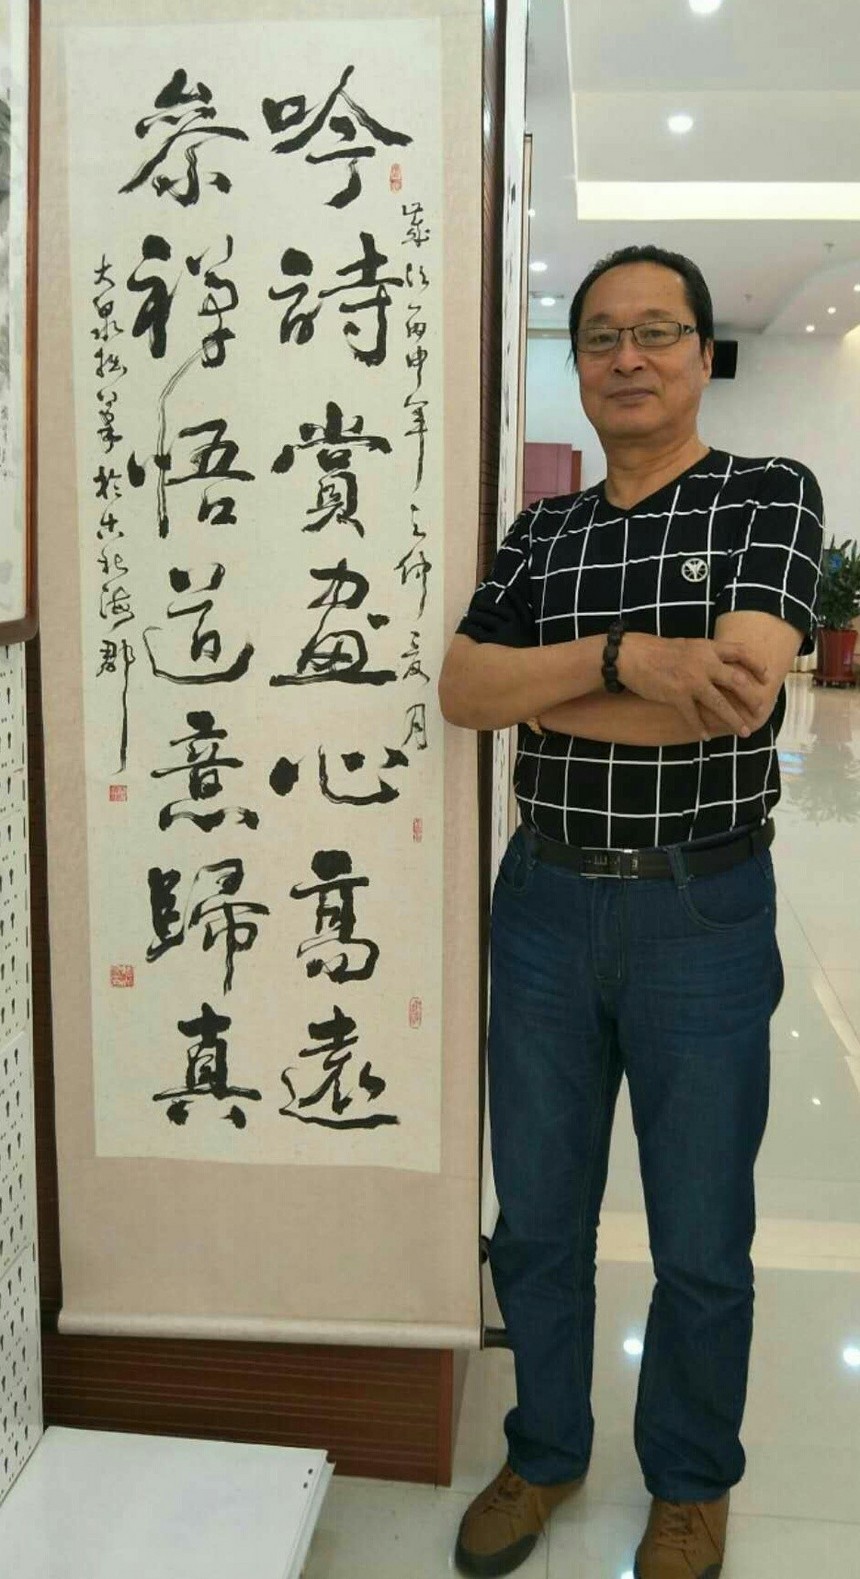 吟詩賞畫心高遠
歲次丙申年之仲夏月
參禪悟道意歸真
大泉拙筆於古北海郡